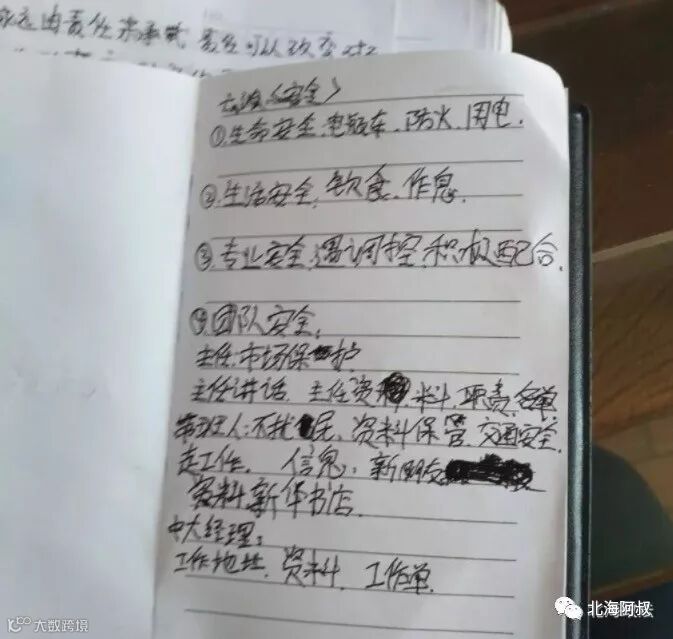 永远由责任来承载 责任可以改变对
六、(安全)
①生命安全.电瓶车.防火.用电.
②生活安全,饮食.作息.
③专业安全,遇调控.积极配合.
④团队安全,
主任:市场保护
主任讲话.主任资料.职责.名单
带班人:不扰民、资料保管.交通安全.
走工作. 信息: 新朋友
资料新华书店.
中大经理:
工作地址.资料.工作单.
大数跨境
北海阿叔